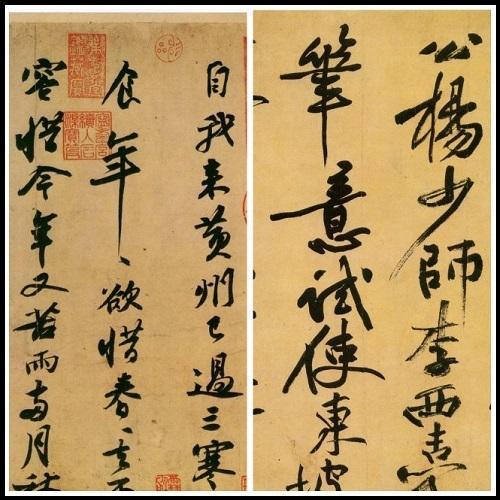 自我來黃州已過三寒
食年〻欲惜春〻去不
容惜今年又苦雨兩月秋
公楊少師李西臺
筆意試使東坡